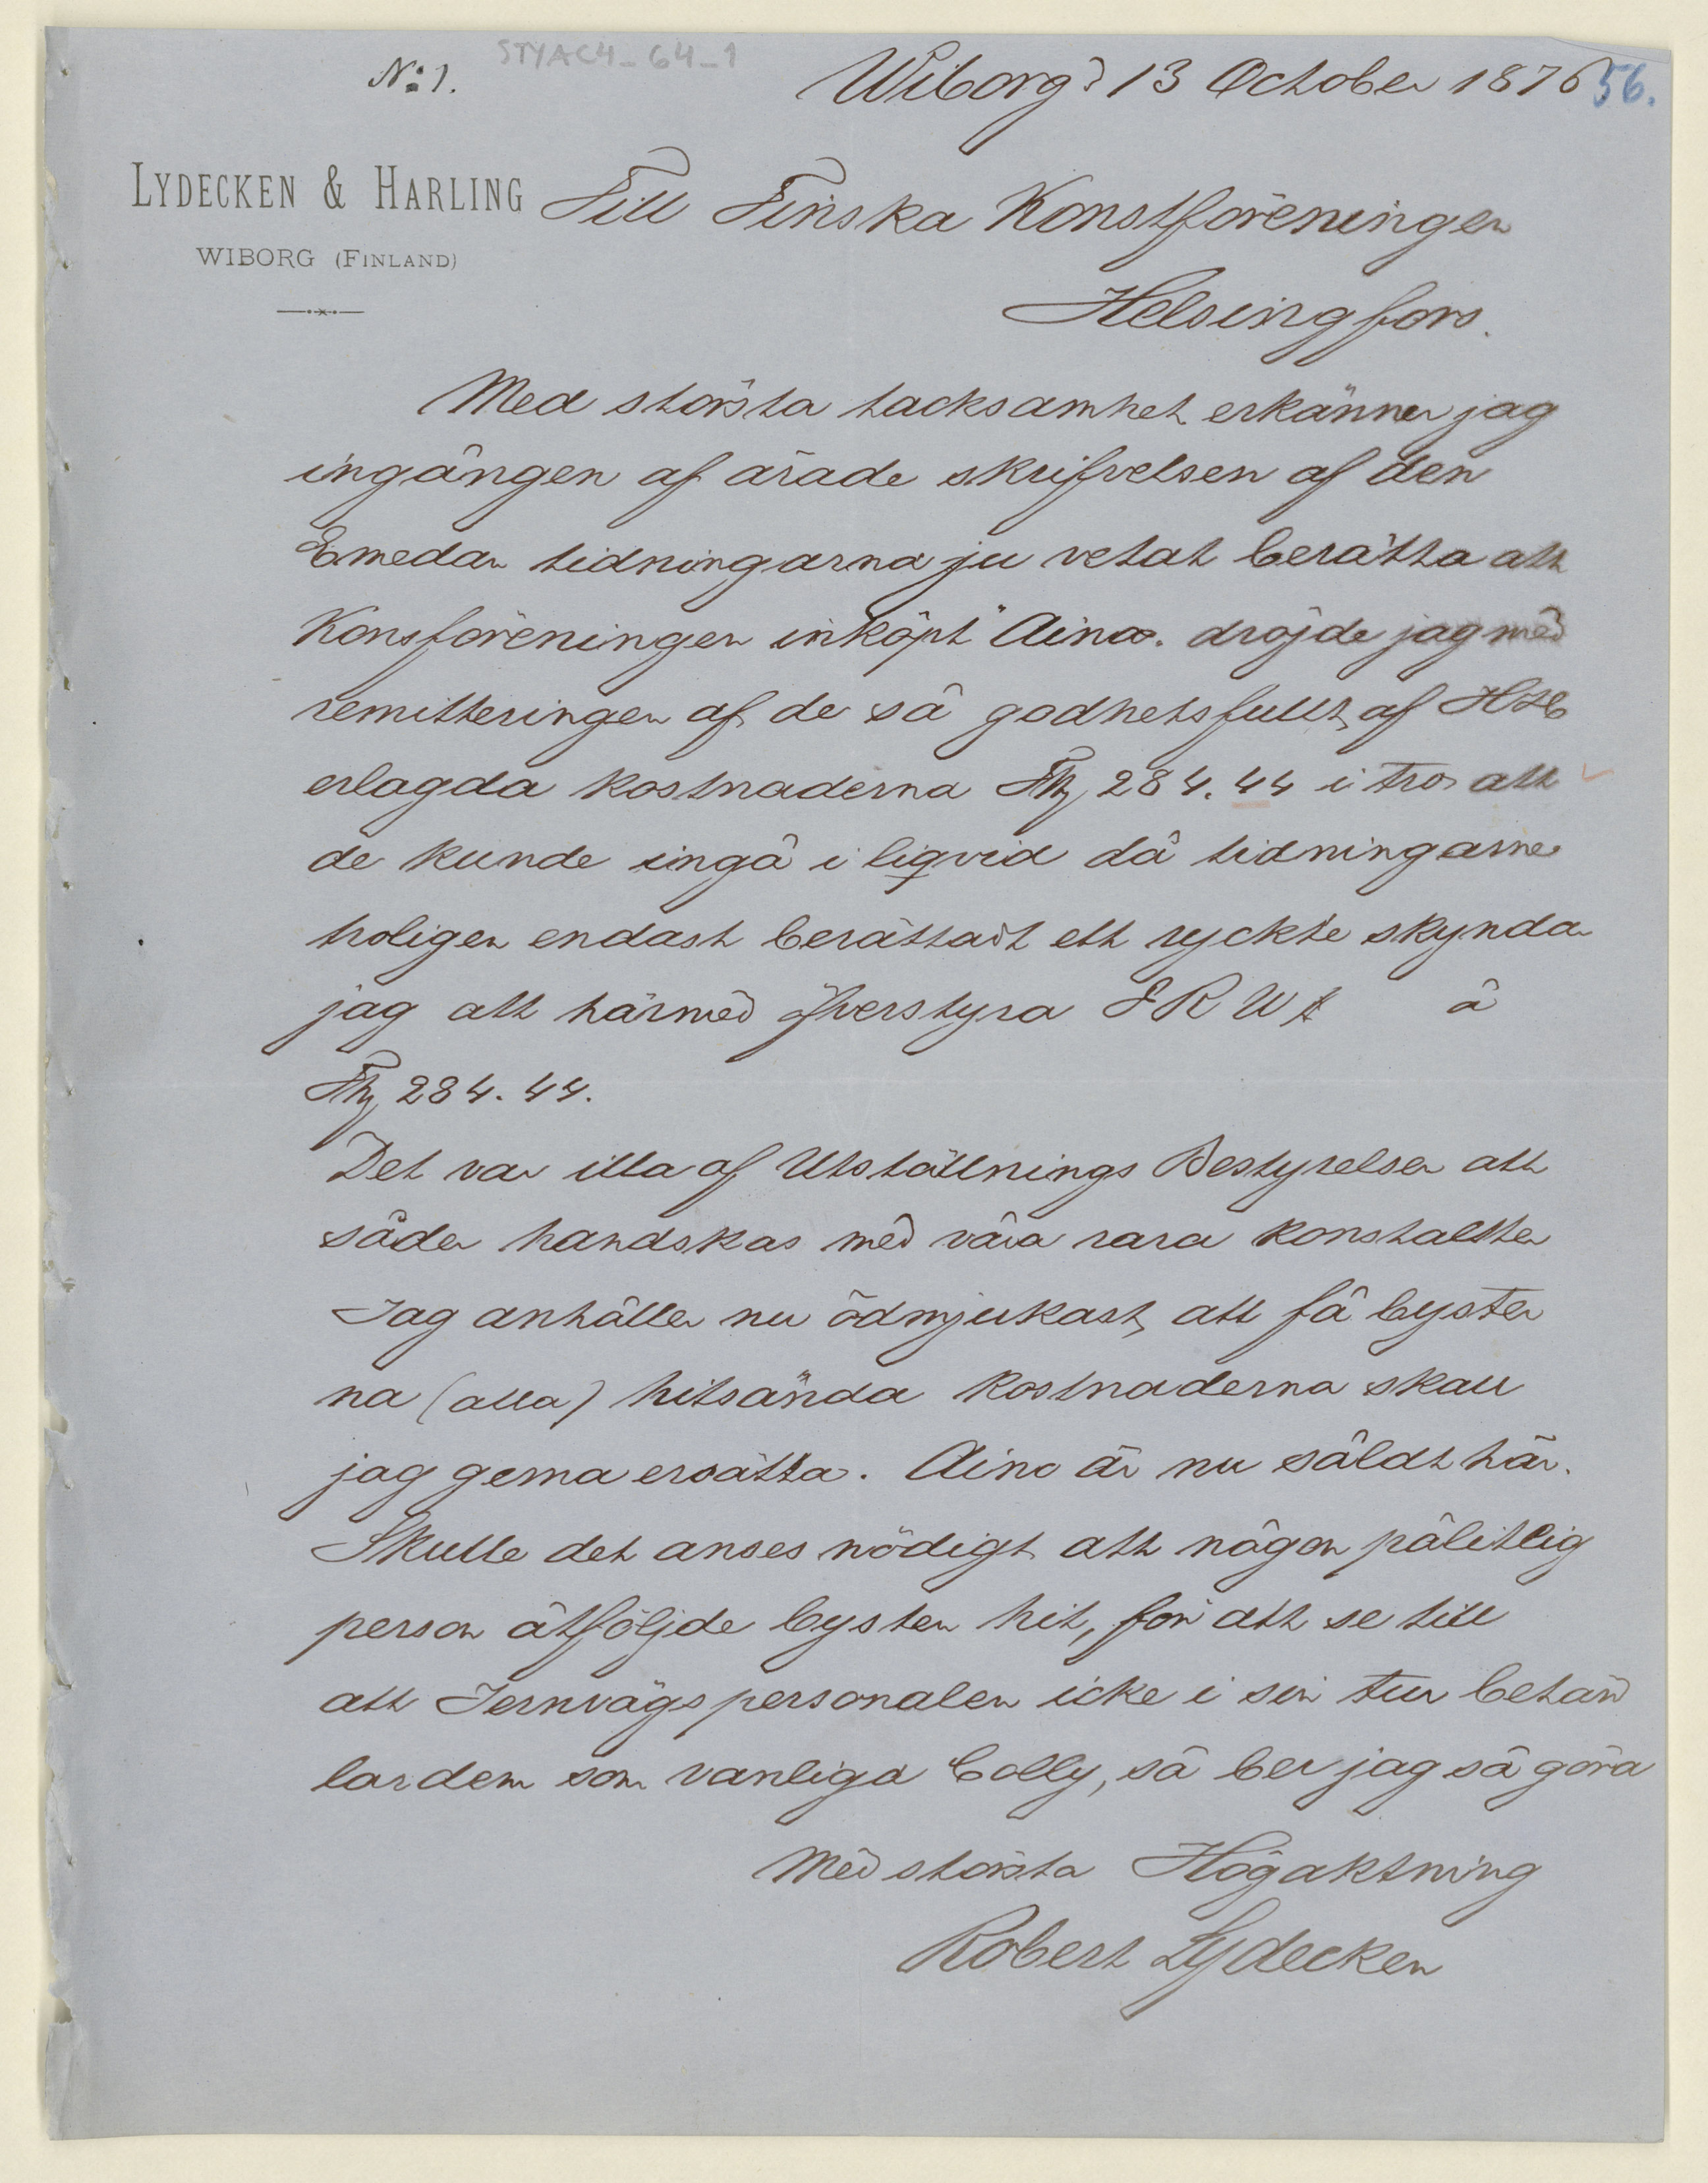 STYAC4_64_1
N:o 1.
Wiborg d 13 October 1876
56.
LYDECKEN & HARLING
WIBORG (FINLAND)
Till Finska Konstföreningen
Helsingfors.
Med största tacksamhet erkänner jag
ingången af ärade skrifvelsen af den
Emedan tidningarna ju vetat berätta att
Konsföreningen inköpt "Aino. dröjde jag med
remitteringen af de så godhetsfullt af
erlagda kostnaderna Fmk 284.44 i tro att
de kunde ingå i liqvid då tidningarne
troligen endast berättadt ett ryckte skynda
jag att härmed öfverstyra à
Fmk 284.44.
Det var illa af Utställnings Bestyrelsen att
såder handskas med våra rara konstalster
Jag anhåller nu ödmjukast att få byster
na (alla) hitsända kostnaderna skall
jag gerna ersätta. Aino är nu såldt här.
Skulle det anses nödigt att någon pålitlig
person åtföljde bysten hit, för att se till
att Jernvägspersonalen icke i sin tur behand
lar dem som vanliga Colly, så ber jag så göra
Med största Högaktning
Robert Lydecken